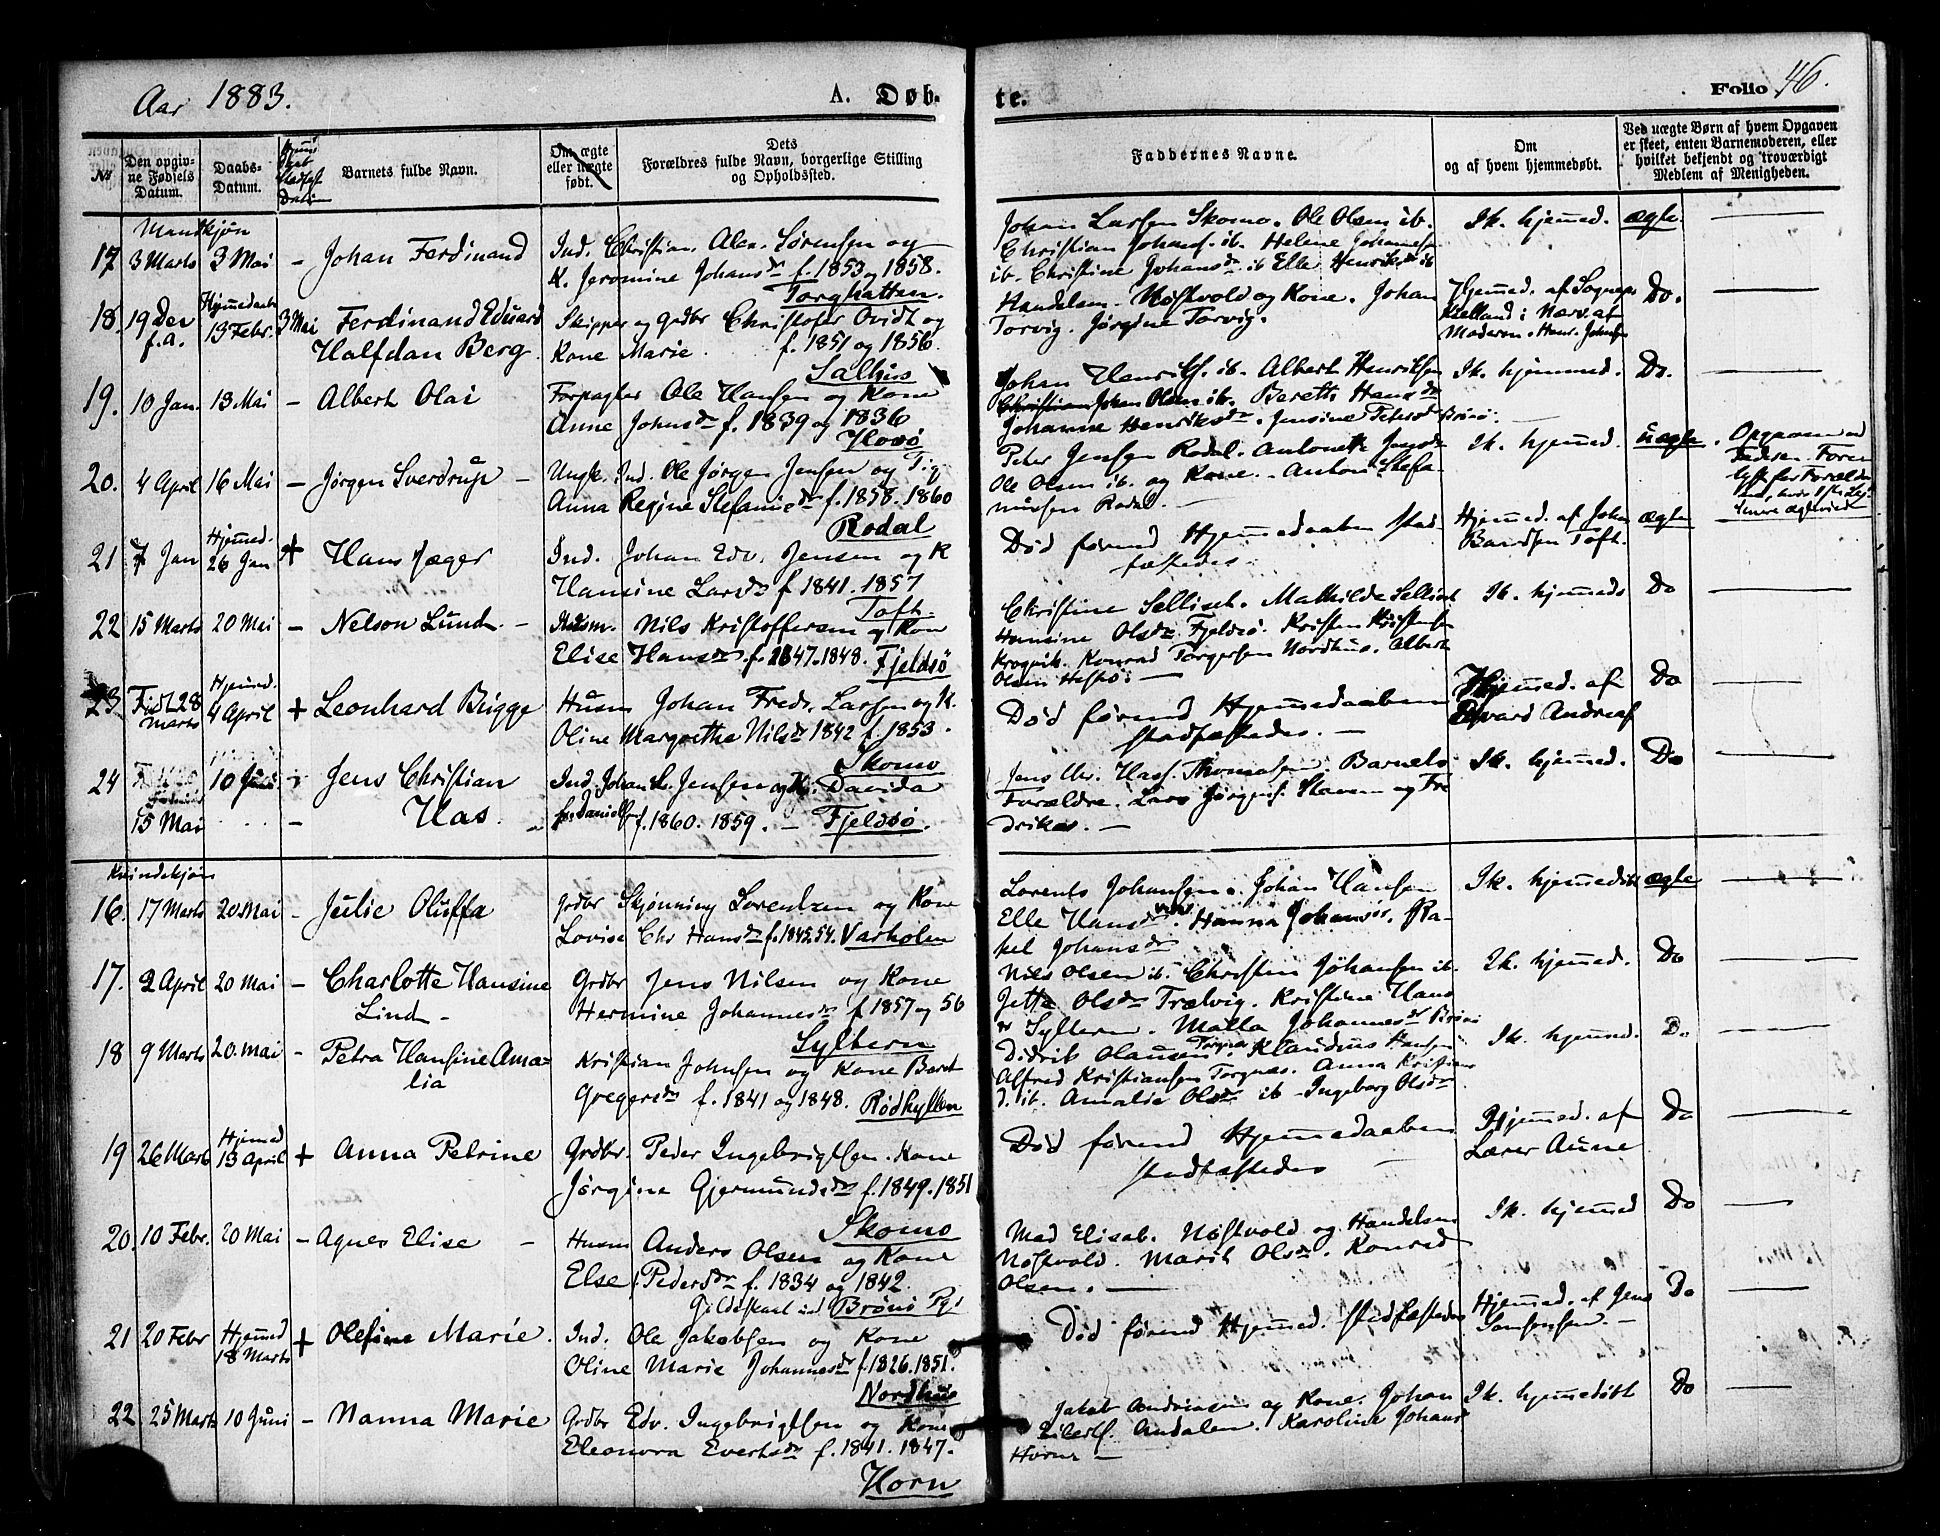 Aar 1883.
A. Døb-
te.
Folio 46.
No
Den opgivne Fødsels Datum.
Daabs-Datum.
Barnets fulde Navn.
Om ægte eller uægte født.
Dets Forældres fulde Navn, borgerlige Stilling og Opholdssted.
Faddernes Navne.
Om og af hvem hjemmedøbt.
Ved uægte Børn af hvem Opgaven er skeet, enten Barnemoderen, eller hvilket bekjendt og troværdigt Medlem af Menigheden.
Mandkjøn
17 3 Marts 3 Mai – Johan Ferdinand
Ind. Christian Alex. Sørensen og
K. Jeromine Johansdr f. 1853 og 1858.
Torghatten.
Johan Larsen Skomo. Ole Olsen ib.
Christian Johans. ib. Helene Johannesen
ib. Christine Johansdr ib Elle Henriksdr ib
Ik. hjemmed. ægte.
18. 19 Dec f.a. Hjemmedaab 13 Febr. 3 Mai Ferdinand Eduard
Halfdan Berg
Skipper og Grdbr Christofer Ovidt og
Kone Marie f. 1851 og 1856.
Salhus
Handelsm. Nøstvold og Kone. Johan
Torvig. Jørgine Torvig.
Hjemmed. af Sognepr
Kielland i Nærv. af
Moderen. Henr. Johnsen
Do.
19. 10 Jan. 13 Mai – Albert Olai
Forpagter Ole Hansen og Kone
Anne Johnsdr f. 1839 og 1836
Johan Henriks. ib. Albert Henriksen
Christian Johan Olsen ib. Bereth Hansdr
Johanne Henriksdr. Jensine Petersdr Brønø.
Ik. hjemmed. Do.
20. 4 April 16 Mai – Jørgen Sverdrup –
Ungk. Ind. Ole Jørgen Jensen og Pig
Anna Regine Stefansdr f. 1858. 1860
Rodal
Peter Jensen Rodal. Antonette Jensdr
Ole Olsen ib. og Kone. Anton Stefa
niussen Rodal. –
Ik. hjemmed. uægte.
21 7 Jan Hjemmed. 26 Jan + Hans Jæger
Ind. Johan Edv. Jensen og K
Hansine Larsdr f 1841. 1857
Toft.
Død førend Hjemmedaaben stad
fæstedes.
Hjemmed. af Johan
Toft.
ægte
22 15 Marts 20 Mai – Nelson Lund –
Husm. Nils Kristoffersen og Kon
Elise Hansdr. f. 1847. 1848. Fjeldsø
Christine Sellisst. Mathilde Sellisst
Hansine Olsdr Fjeldsø. Kristen Kristensen
Krogvik. Konrad Torgersen Nordhus. Albert
Olsen
Ik. hjemmed Do
23 Født 28 Marts Hjemmed. 4 April + Leonhard Brigge
Husm Johan Fredr. Larsen og K.
Oline Margrethe Nilsdr 1842 f. 1853.
Skomo
Død førend Hjemmedaaben
stadfæstedes. –
Hjemmed. af
Edvard Andreas
Do
24 15 Mai 10 Juni – Jens Christian
Has.
Ind. Johan L. Jensen og K. Davida
f. 1860. 1859. – Fjeldsø.
Jens Chr. Hass. Thomasen. Barnets
Forældre. Lars Jørgens. Havn og Fre
drikke. –
Ik. hjemmed. Do
Kvindekjøn
16. 17 Marts 20. Mai – Julie Oluffa
Grdbr Skjønning Lorentzen og Kone
Lovise Chr Hansdr f. 1845. 54. Varholm
Lorents Johansen. Johan Hansen
Elle Hansdr. Hanna Johansdr. Ra-
kel Johansdr
Ik. hjemmedøbt ægte
17. 2 April 20 Mai – Charlotte Hansine
Lind –
Grdbr Jens Nilsen og Kone
Hermine Johannesdr f. 1857 og 56
Syltern
Nils Olsen ib. Christen Johansen ib.
Jette Olsdr Trælvig. Kristine Hans
dr Syltern. Malla Johannesdr Brønø
Ik. hjemmed. Do
18 9 Marts 20. Mai – Petra Hansine Ama-
lia
Kristian Johnsen og Kone Beret
Gregersdr f. 1841 og 1848. Rødhylln
Didrik Olausen Torgnæs. Klaudius Hansen
Alfred Kristiansen Torgnæs. Anna Kristians
d. ib. Amalie Olsdr ib Ingeborg Olsdr
Ik. hjemmed. Do
19 26 Marts Hjemmed 13 April + Anna Petrine
Grdbr. Peder Ingebrigtsen. Kone
Jørgine Gjermundsdr f. 1849. 1851
Skomo
Død førend Hjemmedaaben
stadfæstedes –
Hjemmed. af
Lærer Aune
Do
20. 10 Febr. 20 Mai – Agnes Elise –
Husm Anders Olsen og Kone
Else Pedersdr f. 1834 og 1842.
Gildeskaal ind Brønø Pgj
Mad Elisab. Nøstvold og Handelsm
Nøstvold. Marit Olsdr. Konrad
Olsen. –
Ik. hjemmed Do
21 20 Febr Hjemmed 18 Marts + Olefine Marie.
Ind. Ole Jakobsen og Kone
Oline Marie Johannesdr f. 1826. 1851.
Nordhus
Død førend Hjemmed. stadfæstedes
Hjemmed. af Jens
Do
22. 25 Marts 10 Juni – Nanna Marie
Grdbr Edv. Ingebrigtsen og Kone
Eleonora Evertsdr f. 1841. 1847.
Horn
Jakob Andreassen og Kone. Johan
Eilerts. Andalen. Karoline Johans
Horne –
Ik. hjemmedøbt Do